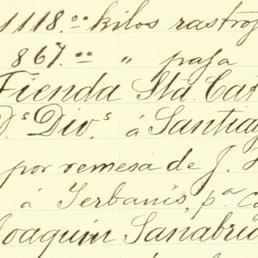 1118.00 kilos rastroj
867.00 " paja
Fienda Sta. Cat
Ds. Divs. á Santia
por remesa de J.
á Ierbanis, pa. C
Joaquin Sanabri